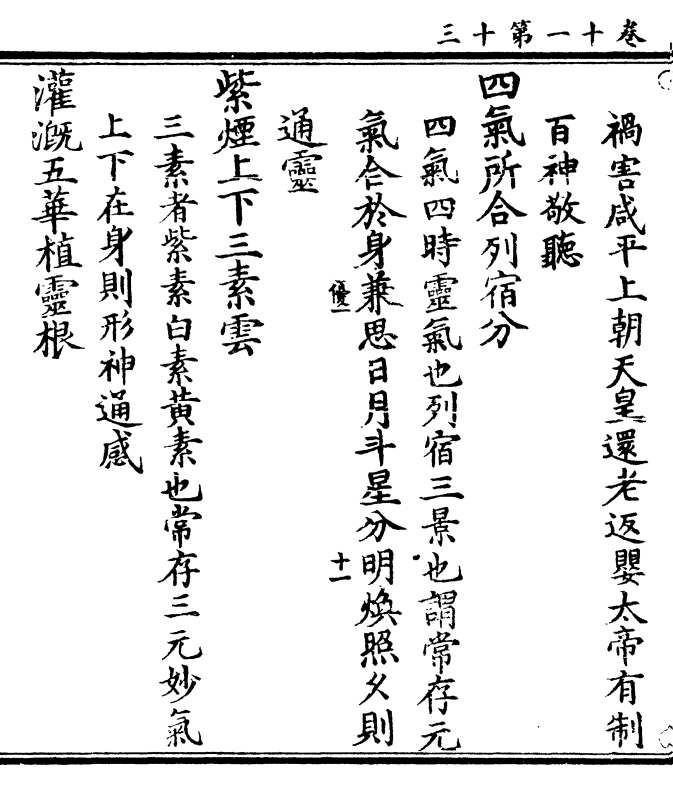 卷十一第十三
禍害咸平上朝天皇還老返嬰太帝有制
百神敬聽
四氣所合列宿分
四氣四時靈氣也列宿三景也謂常存元
氣合於身兼思日月斗星分明煥照久則
優一
十一
通靈
紫煙上下三素雲
三素者紫素白素黃素也常存三元妙氣
上下在身則形神通感
灌溉五華植靈根